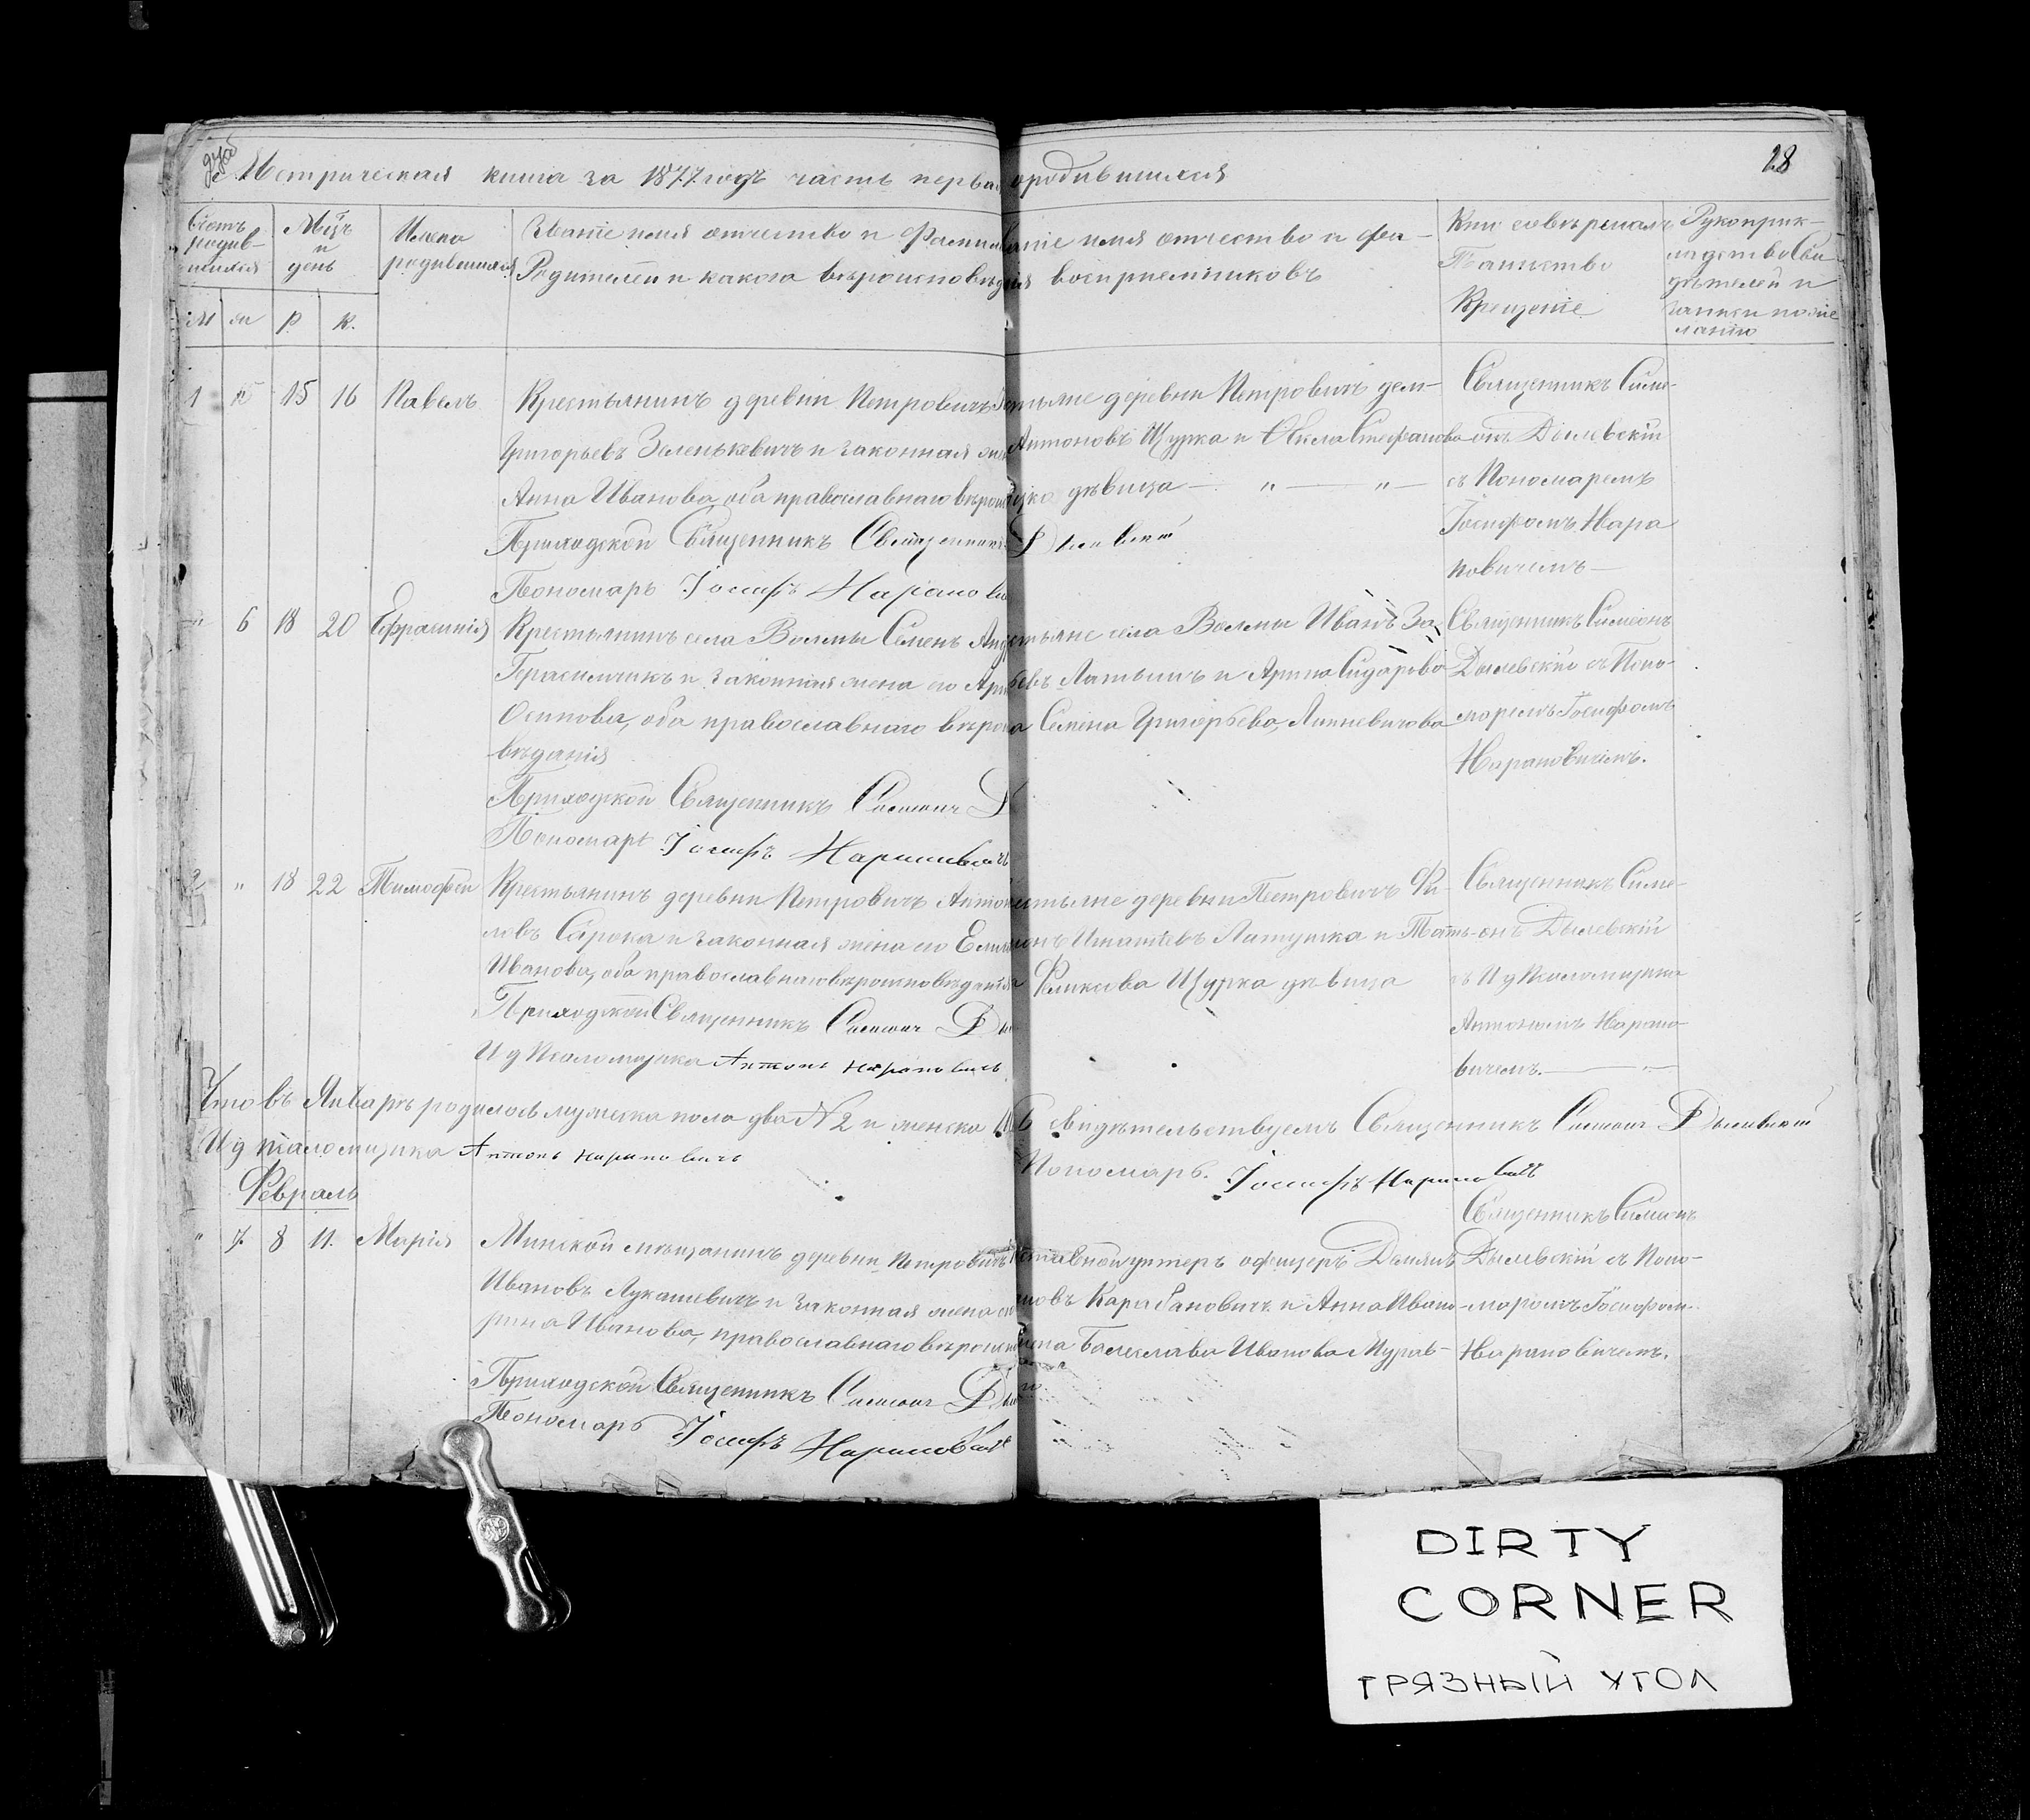 28
Метрическая книга за 1877 годъ часть первая ородившихся
Счетъ родив-шихся
Мѣцъ и день
Имена родившихся
Званіе имя отчество и Фамил
Родителей и какого вѣроисповѣд
аніе имя отчество и фа-
воспріемниковъ
Кто совершалъ
Таинство
Крещеніе
Рукоприк-
ладство Сви
дѣтелей и
записи по же
ланію
М ж Р К.
1 15 16 Павелъ Крестьянинъ деревни Петровичъ
Григорьевъ Зеленькевичъ и законная
Анна Иванова, оба православнаго вѣрои
Приходской Священникъ
Пономарь Іосифъ Нарано
тьяне деревни Петровичъ дем-
Антоновъ Щурка и Стефанова
дѣвица — " — " —
Священникъ Симе-
онъ Дылевскій
съ Пономаремъ
Іосифомъ Нара
новичемъ —
" 6 18 20 Ефросинія Крестьянинъ села Волмы Семенъ Анд
Герасимчикъ и законная жена его Ари
Осипова, оба православнаго вѣрои
вѣданія
Приходской Священникъ Симеонъ Д
Пономарь Іосифъ Наранович
тьяне села Волмы Иванъ За
Латышъ и Арина Сидорова
Семена Григорьева, Линневичова
Священникъ Симеонъ
Дылевскій съ Поно-
моремъ Іосифомъ
Нарановичемъ.
2 " 18 22 Тимофей Крестьянинъ деревни Петровичъ Антон
ловъ Сарока и законная жена его
Иванова, оба православнаго вѣроисповѣданія
Приходской Священникъ Симеонъ Ды
И д Псаломщика Антонъ Нарановичъ
стьяне деревни Петровичъ Фи-
Игнатіевъ Латушка и Тать-
Феликсова Щурка дѣвица
Священникъ Симе-
онъ Дылевскій
съ И д Псаломщика
Антономъ Нарано-
вичемъ. —
Что въ Январѣ родилось мужеска пола два № 2 и женска 6 свидѣтельствуемъ Священникъ Симеонъ Дылевскій
И д псаломщика Антонъ Нарановичъ
Пономарь. Іосифъ Нарановичъ
Февраль
" 7. 8 11. Марія Минской мѣщанинъ деревни Петровичъ
Ивановъ Лукашевичъ и законная жена его
рина Иванова, православнаго вѣроисп
Приходской Священникъ Симеонъ Ды
Пономарь Іосифъ Нарановичъ
ставной унтеръ офицеръ Демянъ
новъ Карабановичъ и Анна Ивано-
Болеслава Иванова Мурав-
Священникъ Симеонъ
Дылевскій съ Поно-
моромъ Іосифом-
Нарановичемъ.
DIRTY
CORNER
ГРЯЗНЫЙ УГОЛ